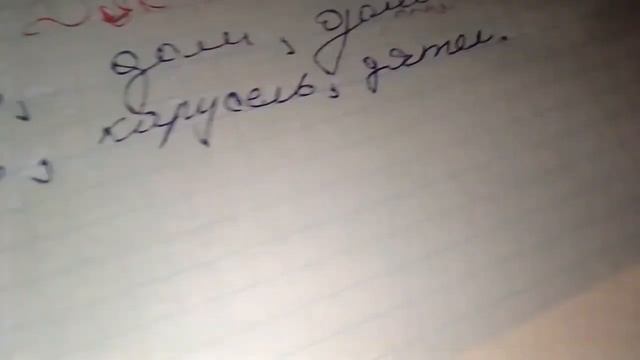 , дом,
, карусель, дятел.